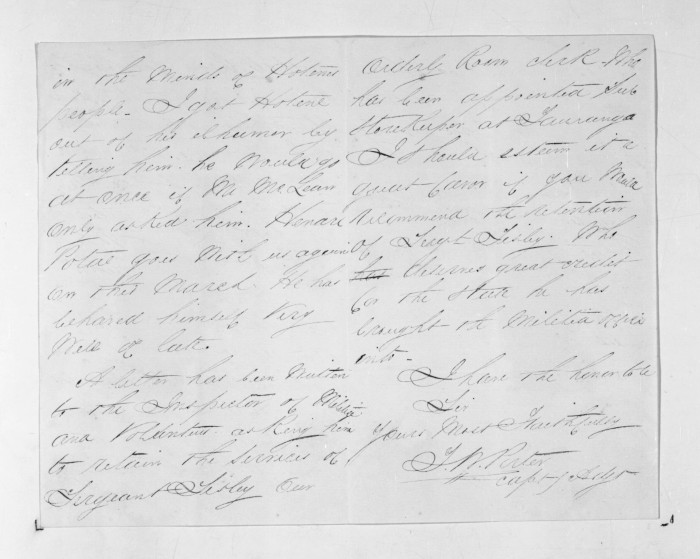 in the Minds of Hotenes
people. I got Hotene
out of his ilhumor by
telling him he would go
at once if Mr McLean
only asked him. Henare
Potae goes with us again
on this March. He has
behaved himself very
Well of late.
A letter has been written
to the Inspector of Militia
and Volunteers asking him
to retain the services of
Sergeant Sisley Our
Orderly Room Clerk Who
has been appointed Sub
Storekeeper at Tauranga
I should esteem it a
great favor if you Would
recommend the retention
of Sergt Sisley. Who
deserves great credit
for the state he has
brought the Militia
into.
I have the honor to be
Sir
Yours Most Faithfully
J. W. Porter
Capt & Adjt